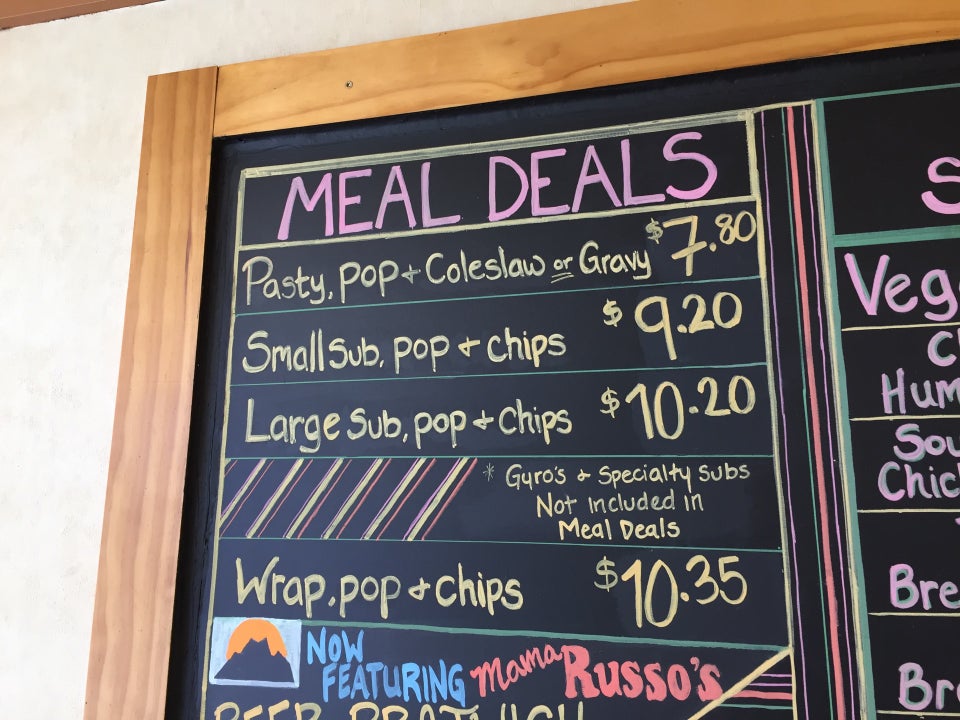 MEAL DEALS
Pasty, pop + Coleslaw or Gravy $7.80
Small Sub, pop + chips $9.20
Large Sub, pop + chips $10.20
* Gyro's + Specialty Subs
Not included in
Meal Deals
Wrap, pop + chips $10.35
NOW
FEATURING mama Russo's
S
Veg
C
Hum
Sou
Chic
Bre
Br